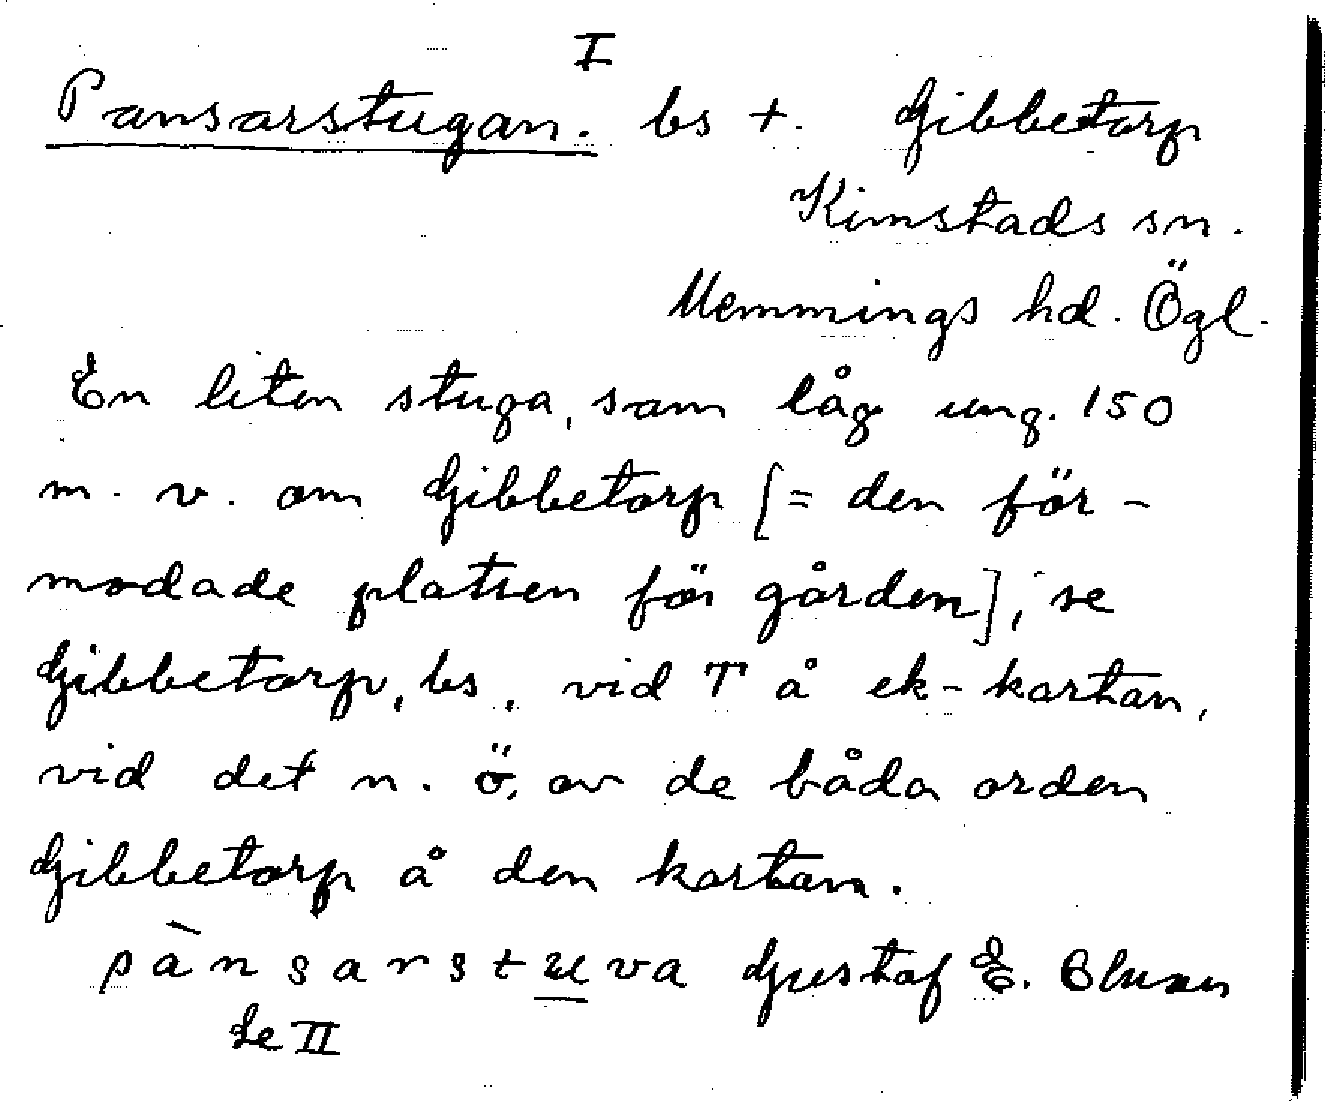 I
Pansarstugan. bs +. Gibbetorp
Kimstads sn.
Memmings hd. Ögl.
En liten stuga, som låg ung. 150
m. v. om Gibbetorp [= den för-
modade platsen för gården], se
Gibbetorp, bs, vid T å ek-kartan,
vid det n. ö. av de båda orden
Gibbetorp å den kartan.
pànsarstuva Gustaf E.
Se II